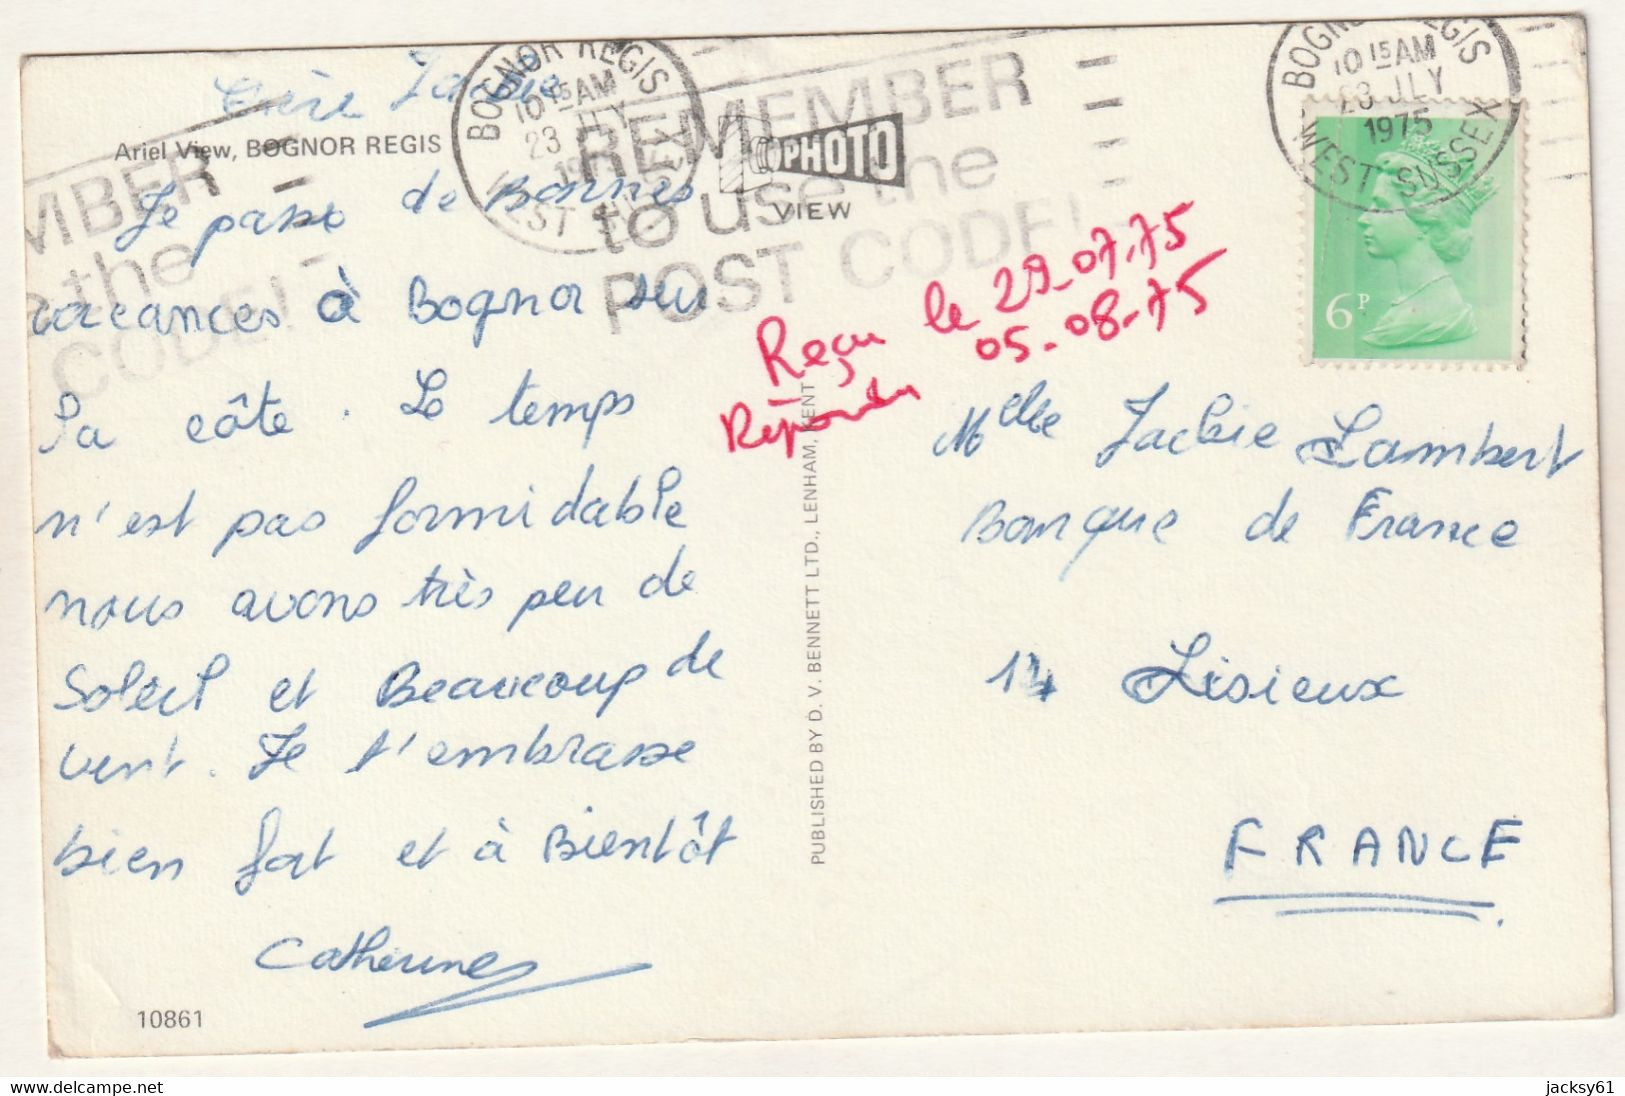 Chère Jackie
Ariel View, BOGNOR REGIS
Je passe de Bonnes
vacances à Bognor sur
la côte. Le temps
n'est pas formidable
nous avons très peu de
Soleil et Beaucoup de
vent. Je t'embrasse
bien fort et à Bientôt
Catherine
10861
BOGNOR REGIS
10 15 AM
23 JLY
WEST SUSSEX
REMEMBER
to use the
POST CODE!
MBER
the
CODE!
PHOTO
VIEW
Reçu le 29-07-75
Répondu 05-08-75
PUBLISHED BY D. V. BENNETT LTD., LENHAM, KENT
BOGNOR REGIS
10 15 AM
23 JLY
1975
WEST SUSSEX
6P
Melle Jackie Lambert
Banque de France
14 Lisieux
FRANCE
delcampe.net
jacksy61